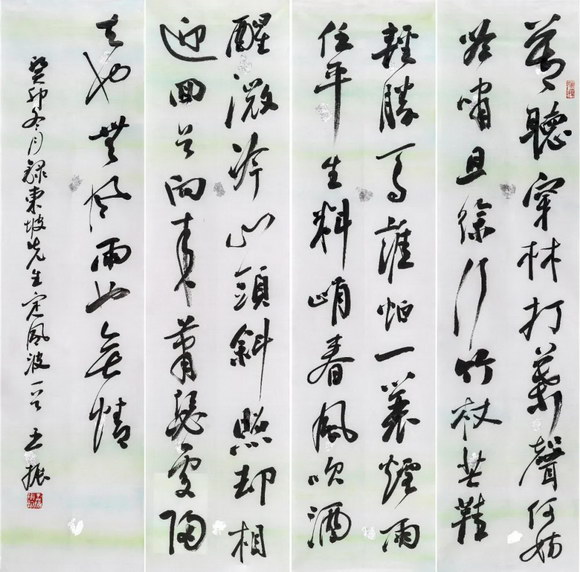 莫聽穿林打葉聲何妨
吟嘯且徐行竹杖芒鞋
輕勝馬誰怕一蓑煙雨
任平生料峭春風吹酒
醒微冷山頭斜照却相
迎回首向来蕭瑟處歸
去也無風雨也无情
癸卯冬月録東坡先生定風波一首 振